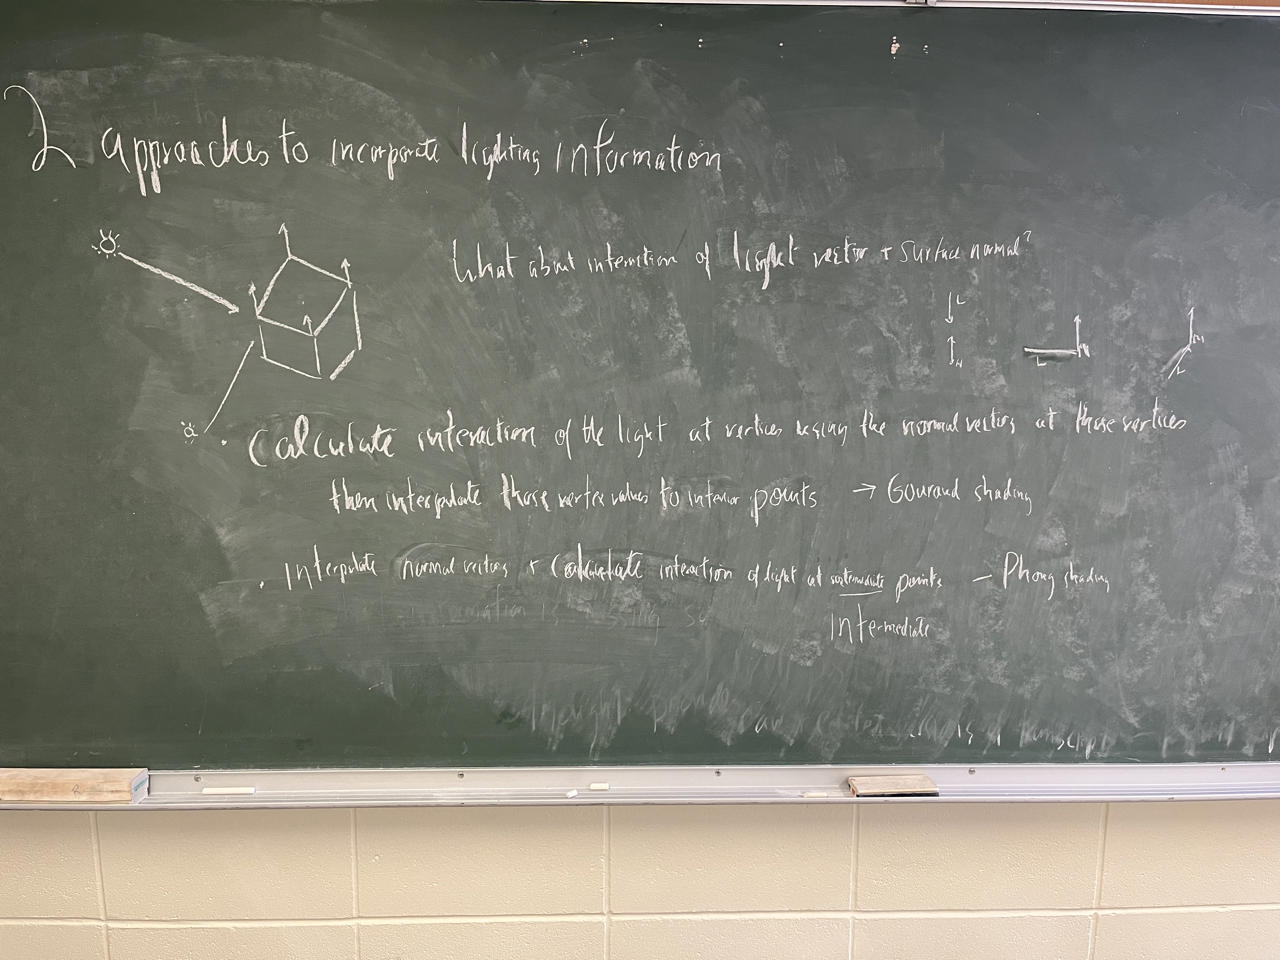 2 approaches to incorporate lighting information
What about interaction of light vector + surface normal?
L
N
L
N
L
N
• Calculate interaction of the light at vertices using the normal vectors at those vertices
then interpolate those vertex values to interior points → Gouraud shading
• Interpolate normal vectors + Calculate interaction of light at intermediate points – Phong shading
Intermediate